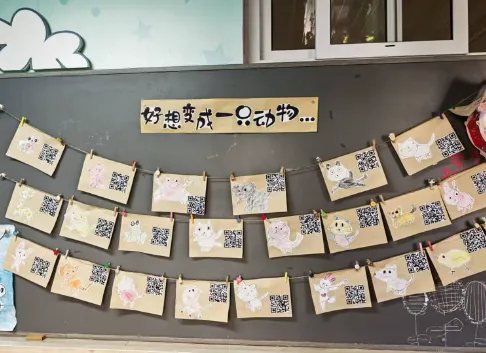 好想变成一只动物...